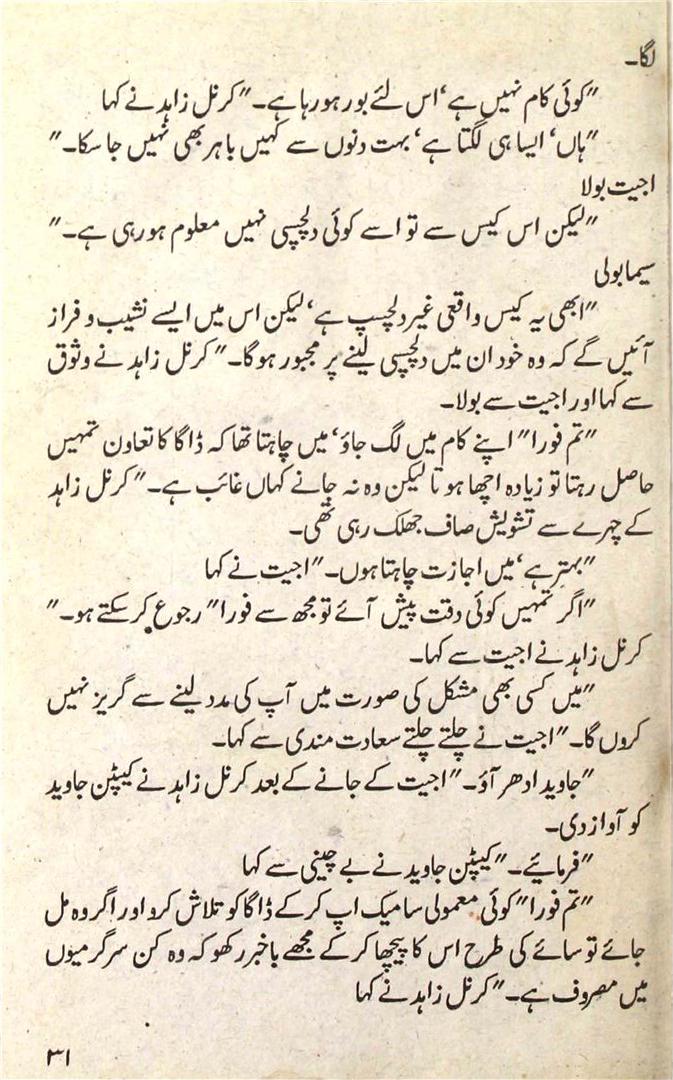 لگا۔
”کوئی کام نہیں ہے‘ اس لئے بور ہو رہا ہے۔“ کرنل زاہد نے کہا
”ہاں‘ ایسا ہی لگتا ہے‘ بہت دنوں سے کہیں باہر بھی نہیں جا سکا۔“
اجیت بولا
”لیکن اس کیس سے تو اسے کوئی دلچسپی نہیں معلوم ہو رہی ہے۔“
سیما بولی
”ابھی یہ کیس واقعی غیر دلچسپ ہے‘ لیکن اس میں ایسے نشیب و فراز
آئیں گے کہ وہ خود ان میں دلچسپی لینے پر مجبور ہو گا۔“ کرنل زاہد نے وثوق
سے کہا اور اجیت سے بولا۔
”تم فورا“ اپنے کام میں لگ جاؤ‘ میں چاہتا تھا کہ ڈاگا کا تعاون تمہیں
حاصل رہتا تو زیادہ اچھا ہوتا لیکن وہ نہ جانے کہاں غائب ہے۔“ کرنل زاہد
کے چہرے سے تشویش صاف جھلک رہی تھی۔
”بہتر ہے‘ میں اجازت چاہتا ہوں۔“ اجیت نے کہا
”اگر تمہیں کوئی دقت پیش آئے تو مجھ سے فورا“ رجوع کر سکتے ہو۔“
کرنل زاہد نے اجیت سے کہا۔
”میں کسی بھی مشکل کی صورت میں آپ کی مدد لینے سے گریز نہیں
کروں گا۔“ اجیت نے چلتے چلتے سعادت مندی سے کہا۔
”جاوید ادھر آؤ۔“ اجیت کے جانے کے بعد کرنل زاہد نے کیپٹن جاوید
کو آواز دی۔
”فرمائیے۔“ کیپٹن جاوید نے بے چینی سے کہا
”تم فورا“ کوئی معمولی سا میک اپ کر کے ڈاگا کو تلاش کرو اور اگر وہ مل
جائے تو سائے کی طرح اس کا پیچھا کر کے مجھے باخبر رکھو کہ وہ کن سرگرمیوں
میں مصروف ہے۔“ کرنل زاہد نے کہا
۳۱